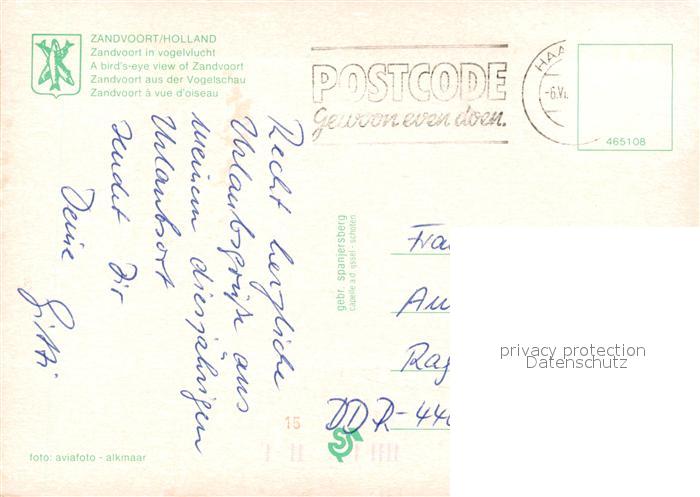 ZANDVOORT/HOLLAND
Zandvoort in vogelvlucht
A bird's-eye view of Zandvoort
Zandvoort aus der Vogelschau
Zandvoort à vue d'oiseau
POSTCODE
Gewoon even doen.
HAA
-6.VI.
465108
Recht herzliche
Urlaubsgrüße aus
meinem diesjährigen
Urlaubsort
sendet Dir
Deine
Gitti.
gebr. spanjersberg
capelle a.d. ijssel - schoten
Fra
Au
Rag
DDR-440
privacy protection
Datenschutz
15
foto: aviafoto - alkmaar